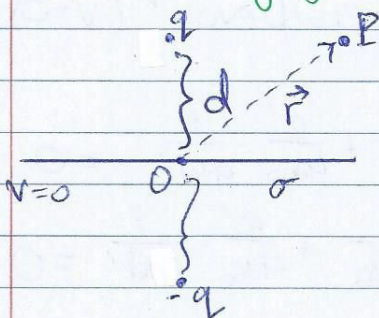 q
P
d
r⃗
V=0
O
σ
-q